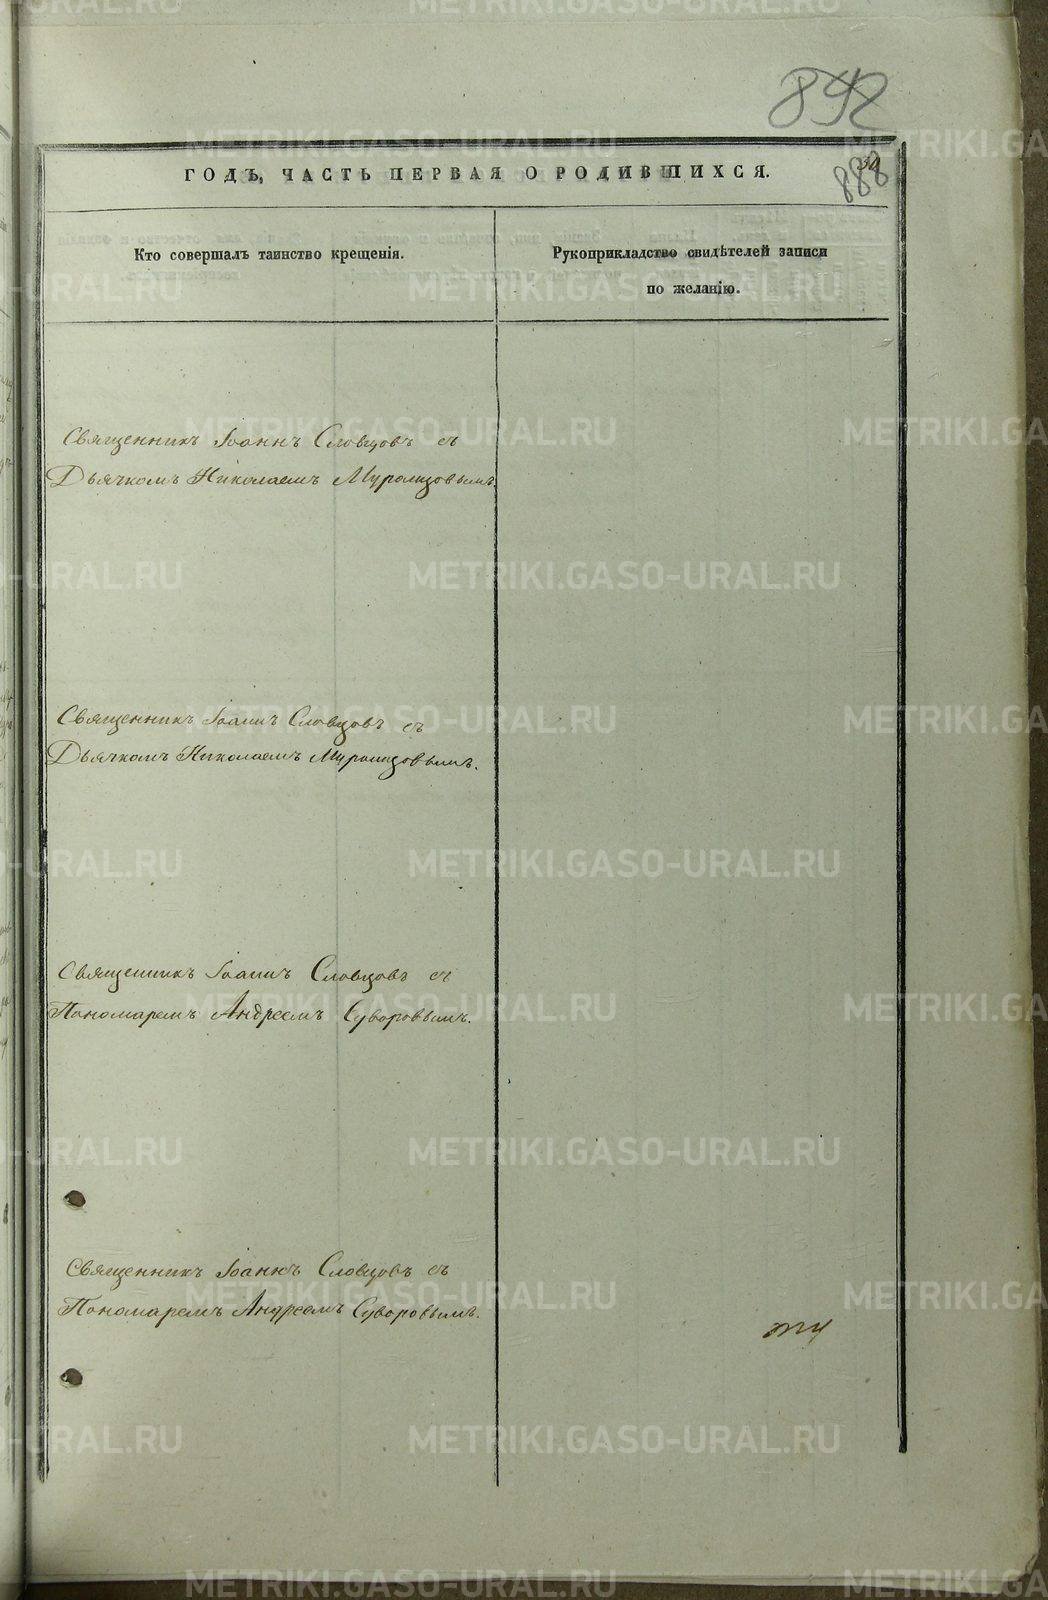 892
888
ГОДЪ, ЧАСТЬ ПЕРВАЯ О РОДИВШИХСЯ.
Кто совершалъ таинство крещенія.
Рукоприкладство свидѣтелей записи
по желанію.
Священникъ Іоаннъ Словцовъ съ
Дьячкомъ Николаемъ Муромцовымъ.
Священникъ Іоаннъ Словцовъ съ
Дьячкомъ Николаемъ Муромцовымъ.
Священникъ Іоаннъ Словцовъ съ
Пономаремъ Андреемъ Суворовымъ.
Священникъ Іоаннъ Словцовъ съ
Пономаремъ Андреемъ Суворовымъ.
METRIKI.GASO-URAL.RU